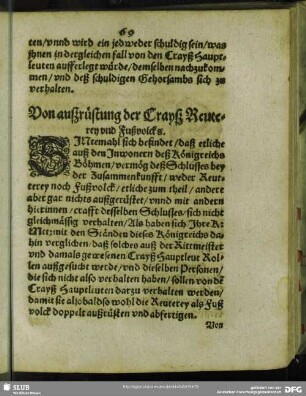 69
ten/vnnd wird ein jedweder schuldig sein/was
jhnen in dergleichen fall von den Crayß Haupt-
leuten aufferlegt würde/demselben nachzukom-
men/vnd deß schuldigen Gehorsambs sich zu
verhalten.
Von außrüstung der Crayß Reute-
rey vnd Fußvolcks.
SIntemahl sich befindet/daß etliche
auß den Inwonern deß Königreichs
Böhmen/vermög deß Schlusses bey
der Zusammenkunfft/weder Reut-
terey noch Fußvolck/etliche zum theil/andere
aber gar nichts außgerüstet/vnnd mit andern
hierinnen/crafft desselben Schlusses/sich nicht
gleichmässig verhalten/Als haben sich Ihre Kö
May: mit den Ständen dieses Königreichs da-
hin verglichen/daß solches auß der Rittmeister
vnd damals gewesenen Crayß Hauptleut Rol-
len außgesucht werde/vnd dieselben Personen/
die sich nicht also verhalten haben/sollen von dē
Crayß Hauptleuten darzu verhalten werden/
damit sie alsobald so wohl die Reuterey als Fuß
volck doppelt außrüsten vnd abfertigen.
Von
SLUB